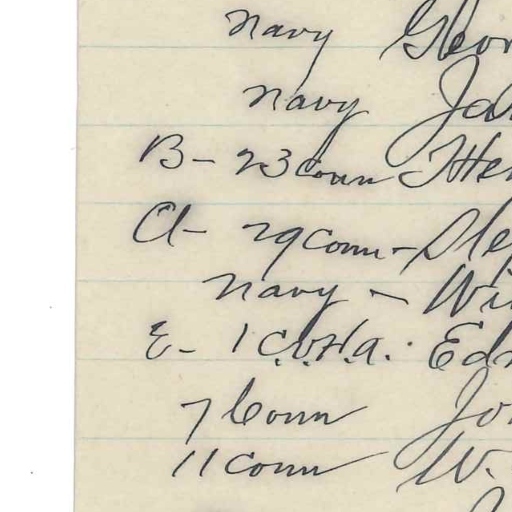 Navy Geor
Navy Ja
B - 23 Conn Hen
A - 29 Conn - Step
Navy - Wi
E - 1 C.V.H.A. Ed
7 Conn Jo
11 Conn W.